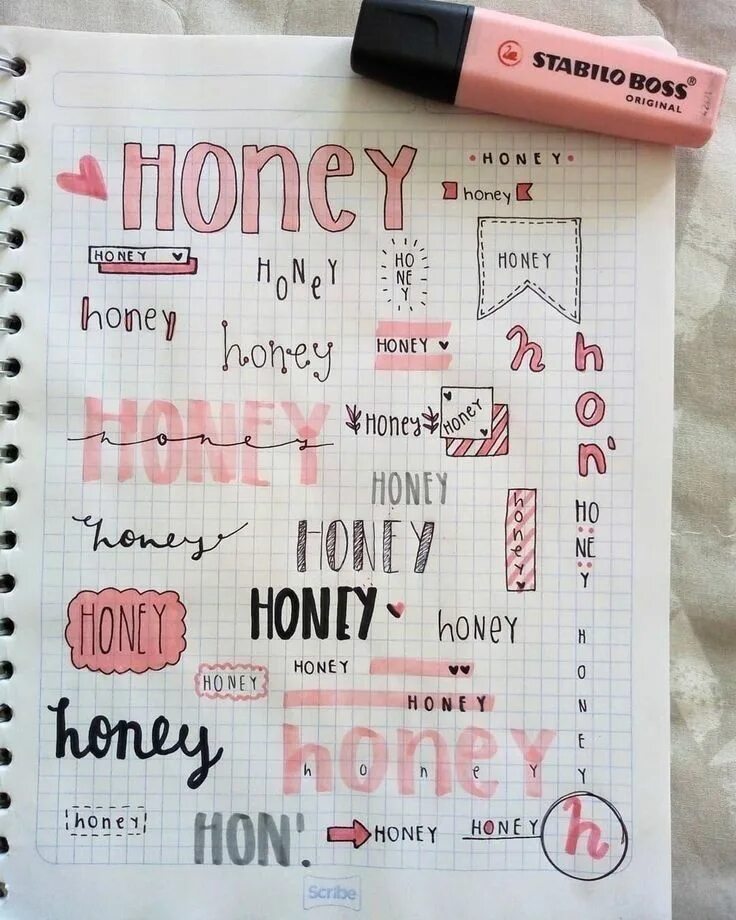 STABILO BOSS®
ORIGINAL
HONEY
• HONEY •
honey
HONEY ♥
HONEY
HO
NE
Y
HONEY
honey
honey
HONEY ♥
h
hon'
HONEY
honey
Honey
Honey
HONEY
honey
HO
NE
Y
honey
HONEY
HONEY
HONEY
honey
HONEY
HONEY
HONEY
HONEY
honey
honey
honey
honey
HON'.
HONEY
HONEY
h
Scribe